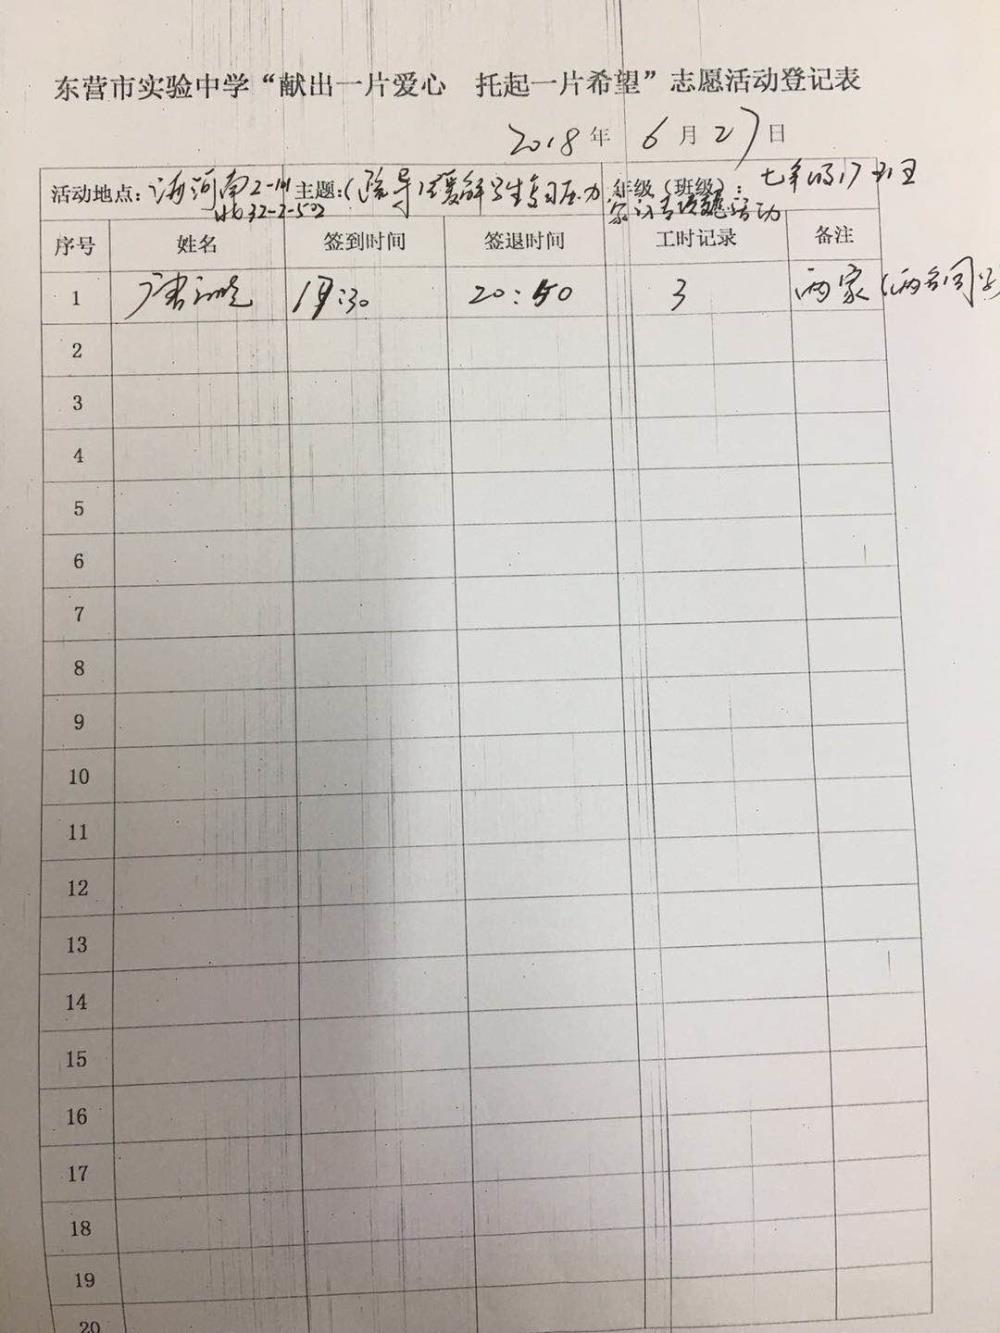 东营市实验中学“献出一片爱心 托起一片希望”志愿活动登记表
2018年 6月27日
活动地点: 海河南2-141 主题: 导 缓解学生 力 年级（班级）: 七年 17班
32-2-502 活动
序号 姓名 签到时间 签退时间 工时记录 备注
1 唐 :30 20:50 3 两家(两名同学)
2
3
4
5
6
7
8
9
10
11
12
13
14
15
16
17
18
19
20